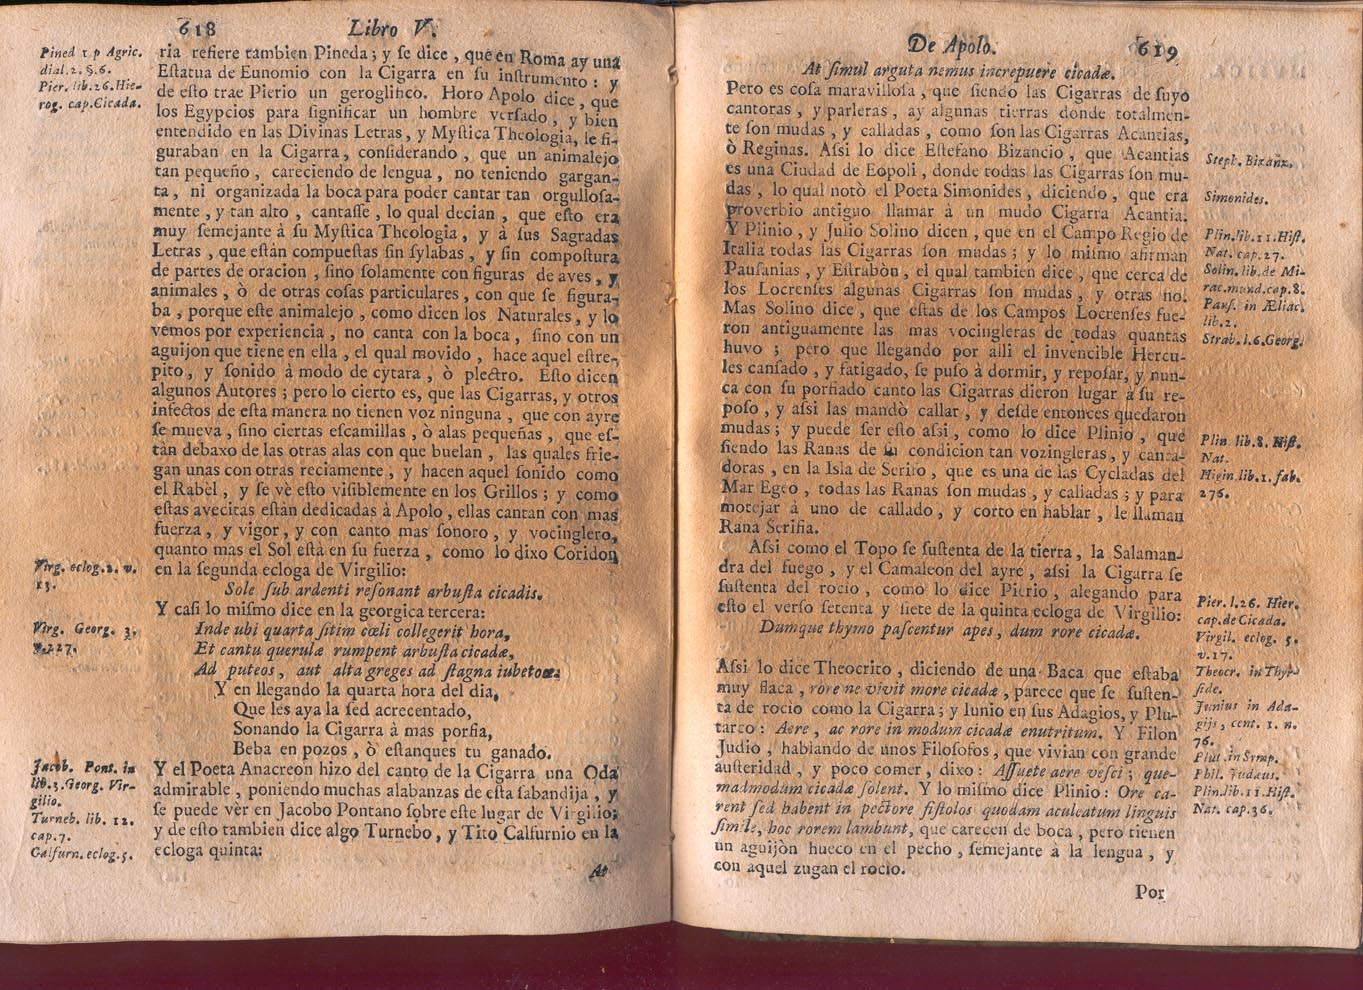 618 Libro V.
Pined 1. p Agric.
dial. 2. §. 6.
Pier. lib. 26. Hie-
rog. cap. Cicada.
ria refiere tambien Pineda; y ſe dice, que en Roma ay una
Eſtatua de Eunomio con la Cigarra en ſu inſtrumento: y
de eſto trae Pierio un geroglifico. Horo Apolo dice, que
los Egypcios para ſignificar un hombre verſado, y bien
entendido en las Divinas Letras, y Myſtica Theologia, le fi-
guraban en la Cigarra, conſiderando, que un animalejo
tan pequeño, careciendo de lengua, no teniendo gargan-
ta, ni organizada la boca para poder cantar tan orgulloſa-
mente, y tan alto, cantaſſe, lo qual decian, que eſto era
muy ſemejante à ſu Myſtica Theologia, y à ſus Sagradas
Letras, que eſtán compueſtas ſin ſylabas, y ſin compoſtura
de partes de oracion, ſino ſolamente con figuras de aves, y
animales, ò de otras coſas particulares, con que ſe figura-
ba, porque eſte animalejo, como dicen los Naturales, y lo
vemos por experiencia, no canta con la boca, ſino con un
aguijon que tiene en ella, el qual movido, hace aquel eſtre-
pito, y ſonido à modo de cytara, ò plectro. Eſto dicen
algunos Autores; pero lo cierto es, que las Cigarras, y otros
inſectos de eſta manera no tienen voz ninguna, que con ayre
ſe mueva, ſino ciertas eſcamillas, ò alas pequeñas, que eſ-
tàn debaxo de las otras alas con que buelan, las quales frie-
gan unas con otras reciamente, y hacen aquel ſonido como
el Rabèl, y ſe vè eſto viſiblemente en los Grillos; y como
eſtas avecitas eſtàn dedicadas à Apolo, ellas cantan con mas
fuerza, y vigor, y con canto mas ſonoro, y vocinglero,
quanto mas el Sol eſtà en ſu fuerza, como lo dixo Coridon
en la ſegunda ecloga de Virgilio:
Virg. eclog. 2. v.
13.
Sole ſub ardenti reſonant arbuſta cicadis.
Y caſi lo miſmo dice en la georgica tercera:
Virg. Georg. 3.
v. 327.
Inde ubi quarta ſitim cœli collegerit hora,
Et cantu querulæ rumpent arbuſta cicadæ,
Ad puteos, aut alta greges ad ſtagna iubeto
Y en llegando la quarta hora del dia,
Que les aya la ſed acrecentado,
Sonando la Cigarra à mas porfia,
Beba en pozos, ò eſtanques tu ganado.
Jacob. Pont. in
lib. 3. Georg. Vir-
gilio.
Turneb. lib. 12.
cap. 7.
Calfurn. eclog. 5.
Y el Poeta Anacreon hizo del canto de la Cigarra una Oda
admirable, poniendo muchas alabanzas de eſta ſabandija, y
ſe puede vèr en Jacobo Pontano ſobre eſte lugar de Virgilio;
y de eſto tambien dice algo Turnebo, y Tito Calfurnio en la
ecloga quinta:
At
De Apolo. 619
At ſimul arguta nemus increpuere cicadæ.
Pero es coſa maravilloſa, que ſiendo las Cigarras de ſuyo
cantoras, y parleras, ay algunas tierras donde totalmen-
te ſon mudas, y calladas, como ſon las Cigarras Acantias,
ò Reginas. Aſsi lo dice Eſtefano Bizancio, que Acantias
es una Ciudad de Eopoli, donde todas las Cigarras ſon mu-
das, lo qual notò el Poeta Simonides, diciendo, que era
proverbio antiguo llamar à un mudo Cigarra Acantia.
Y Plinio, y Julio Solino dicen, que en el Campo Regio de
Italia todas las Cigarras ſon mudas; y lo miſmo afirman
Pauſanias, y Eſtrabòn, el qual tambien dice, que cerca de
los Locrenſes algunas Cigarras ſon mudas, y otras no.
Mas Solino dice, que eſtas de los Campos Locrenſes fue-
ron antiguamente las mas vocingleras de todas quantas
huvo; pero que llegando por alli el invencible Hercu-
les canſado, y fatigado, ſe puſo à dormir, y repoſar, y nun-
ca con ſu porfiado canto las Cigarras dieron lugar à ſu re-
poſo, y aſsi las mandò callar, y deſde entonces quedaron
mudas; y puede ſer eſto aſsi, como lo dice Plinio, que
ſiendo las Ranas de ſu condicion tan vozingleras, y canta-
doras, en la Isla de Serifo, que es una de las Cycladas del
Mar Egeo, todas las Ranas ſon mudas, y calladas; y para
motejar à uno de callado, y corto en hablar, le llaman
Rana Serifia.
Steph. Bizanz.
Simonides.
Plin. lib. 11. Hiſt.
Nat. cap. 27.
Solin. lib. de Mi-
rac. mund. cap. 8.
Pauſ. in Æliac.
lib. 2.
Strab. l. 6. Georg.
Plin. lib. 8. Hiſt.
Nat.
Higin. lib. 1. fab.
276.
Aſsi como el Topo ſe ſuſtenta de la tierra, la Salaman-
dra del fuego, y el Camaleon del ayre, aſsi la Cigarra ſe
ſuſtenta del rocio, como lo dice Pierio, alegando para
eſto el verſo ſetenta y ſiete de la quinta ecloga de Virgilio:
Dumque thymo paſcentur apes, dum rore cicadæ.
Aſsi lo dice Theocrito, diciendo de una Baca que eſtaba
muy flaca, rore ne vivit more cicadæ, parece que ſe ſuſten-
ta de rocio como la Cigarra; y Iunio en ſus Adagios, y Plu-
tarco: Aere, ac rore in modum cicadæ enutritum. Y Filon
Judio, hablando de unos Filoſofos, que vivian con grande
auſteridad, y poco comer, dixo: Aſſuete aere veſci; que-
madmodum cicadæ ſolent. Y lo miſmo dice Plinio: Ore ca-
rent ſed habent in pectore fiſtolos quodam aculeatum linguis
ſimile, hoc rorem lambunt, que carecen de boca, pero tienen
un aguijòn hueco en el pecho, ſemejante à la lengua, y
con aquel zugan el rocio.
Pier. l. 26. Hier.
cap. de Cicada.
Virgil. eclog. 5.
v. 17.
Theocr. in Thyr-
ſide.
Junius in Ada-
gijs, cent. 1. n.
76.
Plut. in Symp.
Phil. Judæus.
Plin. lib. 11. Hiſt.
Nat. cap. 36.
Por